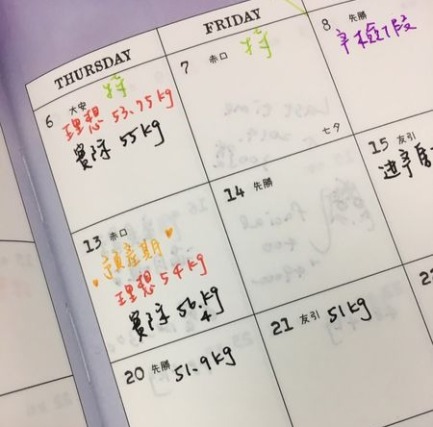 THURSDAY
FRIDAY
6 大安
理想 53.75kg
實際 55kg
7 赤口
8 先勝
七夕
13 赤口
預產期
理想 54kg
實際 56.4kg
14 先勝
15 友引
20 先勝 51.9kg
21 友引 51kg